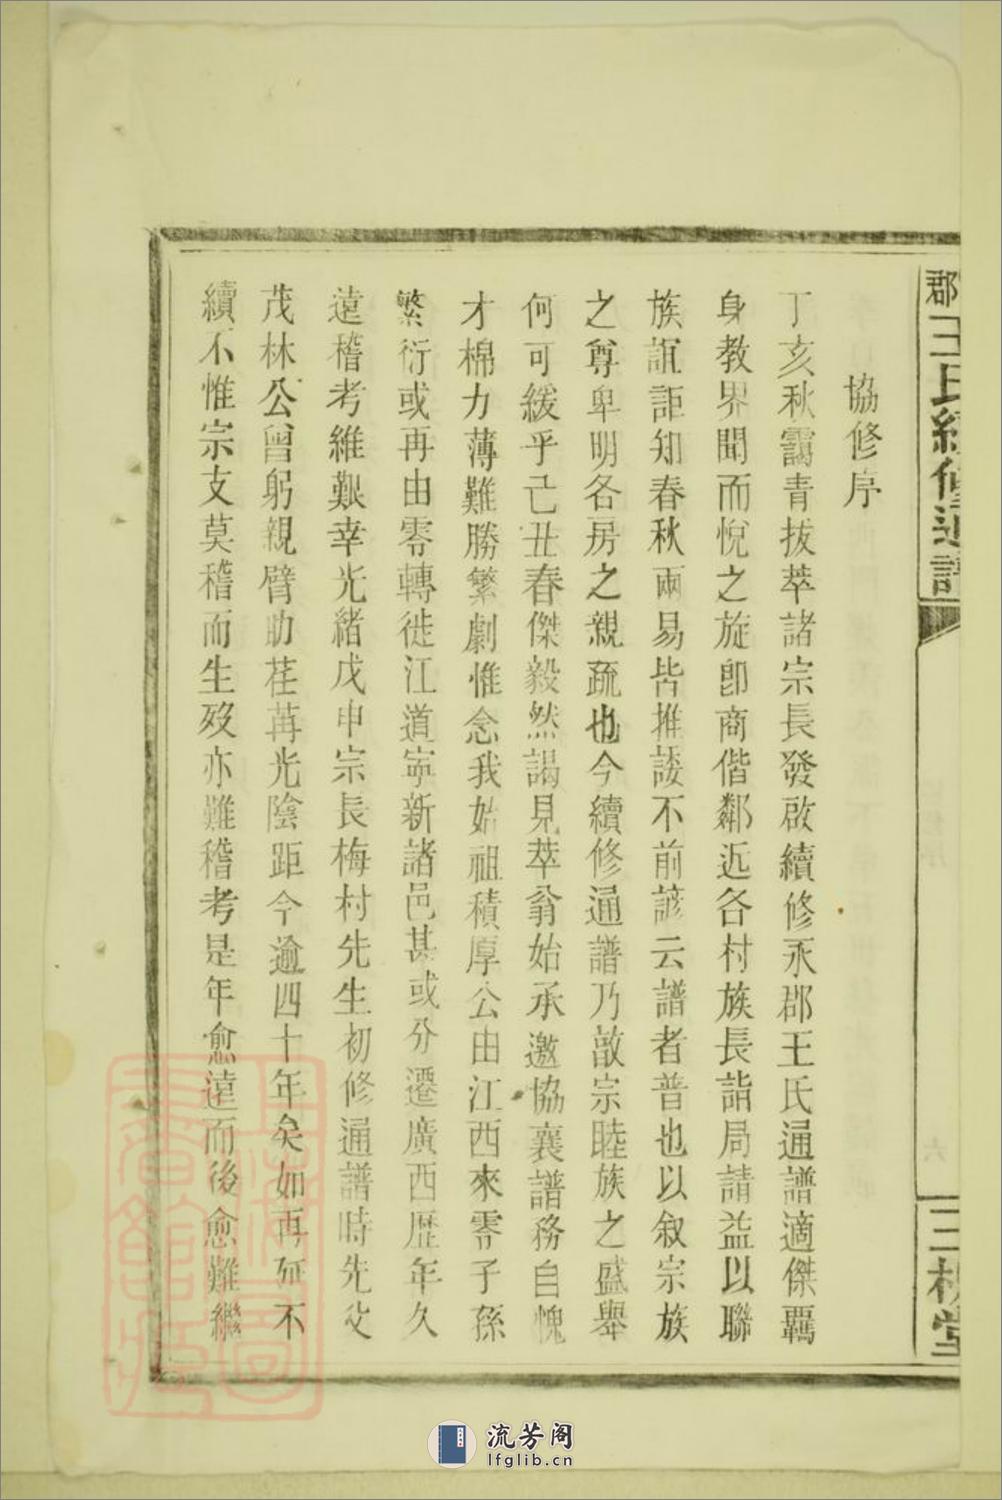 郡王氏續修通譜
三槐堂
協修序
丁亥秋靄青拔萃諸宗長發啟續修永郡王氏通譜適傑羈
身教界聞而悅之旋卽商偕鄰近各村族長詣局請益以聯
族誼詎知春秋兩易皆推諉不前諺云譜者普也以叙宗族
之尊卑明各房之親疏也今續修通譜乃敬宗睦族之盛舉
何可緩乎己丑春傑毅然謁見萃翁始承邀協襄譜務自愧
才棉力薄難勝繁劇惟念我始祖積厚公由江西來零子孫
繁衍或再由零轉徙江道寧新諸邑甚或分遷廣西歷年久
遠稽考維艱幸光緒戊申宗長梅村先生初修通譜時先父
茂林公曾躬親臂助荏苒光陰距今逾四十年矣如再延不
續不惟宗支莫稽而生歿亦難稽考是年愈遠而後愈難繼
六
流芳阁
lfglib.cn